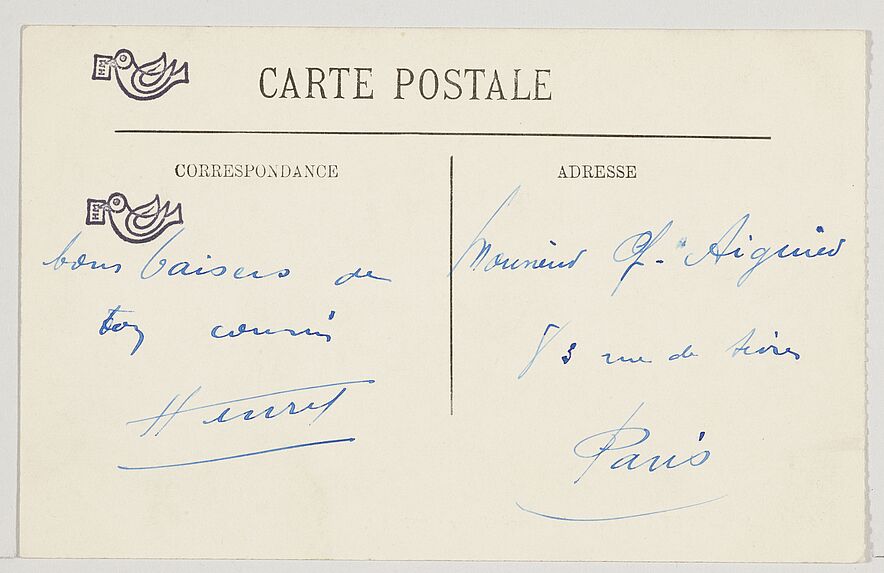 CARTE POSTALE
CORRESPONDANCE
ADRESSE
bons baisers de
ton cousin
Henry
Monsieur Aiguier
rue de Sèvres
Paris